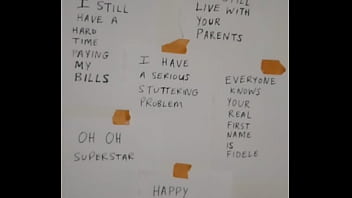 I STILL
HAVE A
HARD
TIME
PAYING
MY
BILLS
LIVE WITH
YOUR
PARENTS
I HAVE
A SERIOUS
STUTTERING
PROBLEM
EVERYONE
KNOWS
YOUR
REAL
FIRST
NAME
IS
FIDELE
OH OH
SUPERSTAR
HAPPY